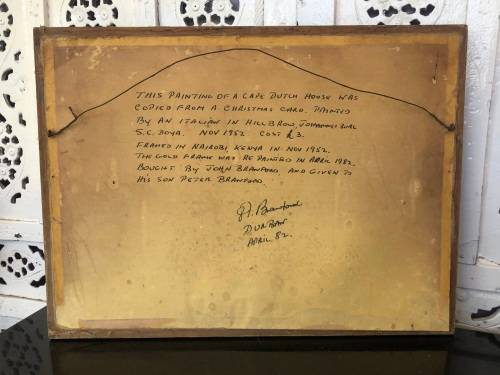 THIS PAINTING OF A CAPE DUTCH HOUSE WAS
COPIED FROM A CHRISTMAS CARD. PAINTED
BY AN ITALIAN IN HILLBROW, JOHANNESBURG
S.C. BOYA. NOV 1952. COST £3.
FRAMED IN NAIROBI, KENYA IN NOV 1952.
THE GOLD FRAME WAS RE PAINTED IN APRIL 1982.
BOUGHT BY JOHN BRANFORD AND GIVEN TO
HIS SON PETER BRANFORD
Branford
DURBAN
APRIL 82.